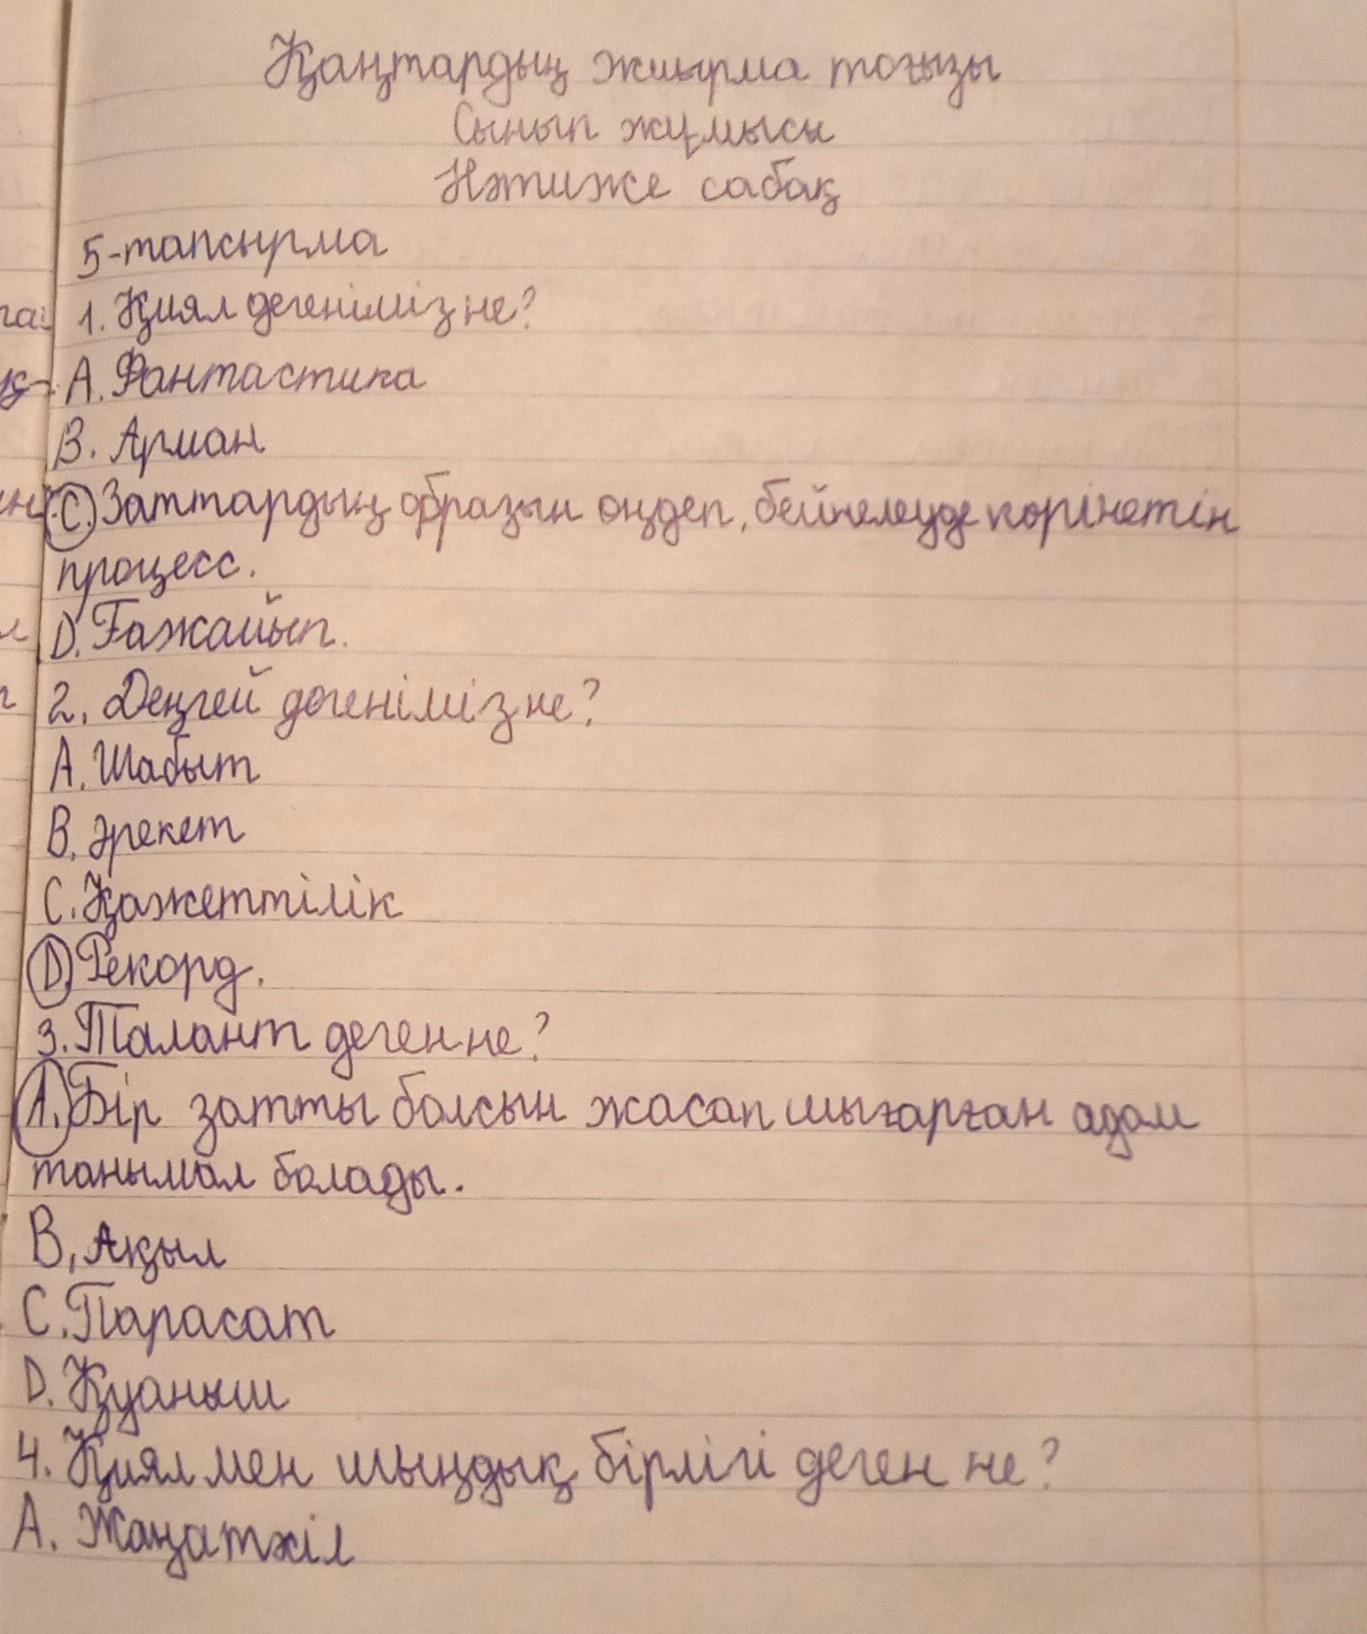 Қаңтардың жиырма тоғызы
Сынып жұмысы
Нәтиже сабақ
5-тапсырма
1. Қиял дегеніміз не?
А. Фантастика
В. Арман
С. Заттардың образын өңдеп, бейнелеуде көрінетін
процесс.
D. Ғажайып.
2. Деңгей дегеніміз не?
А. Шабыт
В. Әрекет
С. Қажеттілік
D. Рекорд.
3. Талант деген не?
А. Бір затты болсын жасап шығарған адам
танымал болады.
В. Ақыл
С. Парасат
D. Қуаныш
4. Қиял мен шыңдық бірлігі деген не?
А. Жаңатхіл